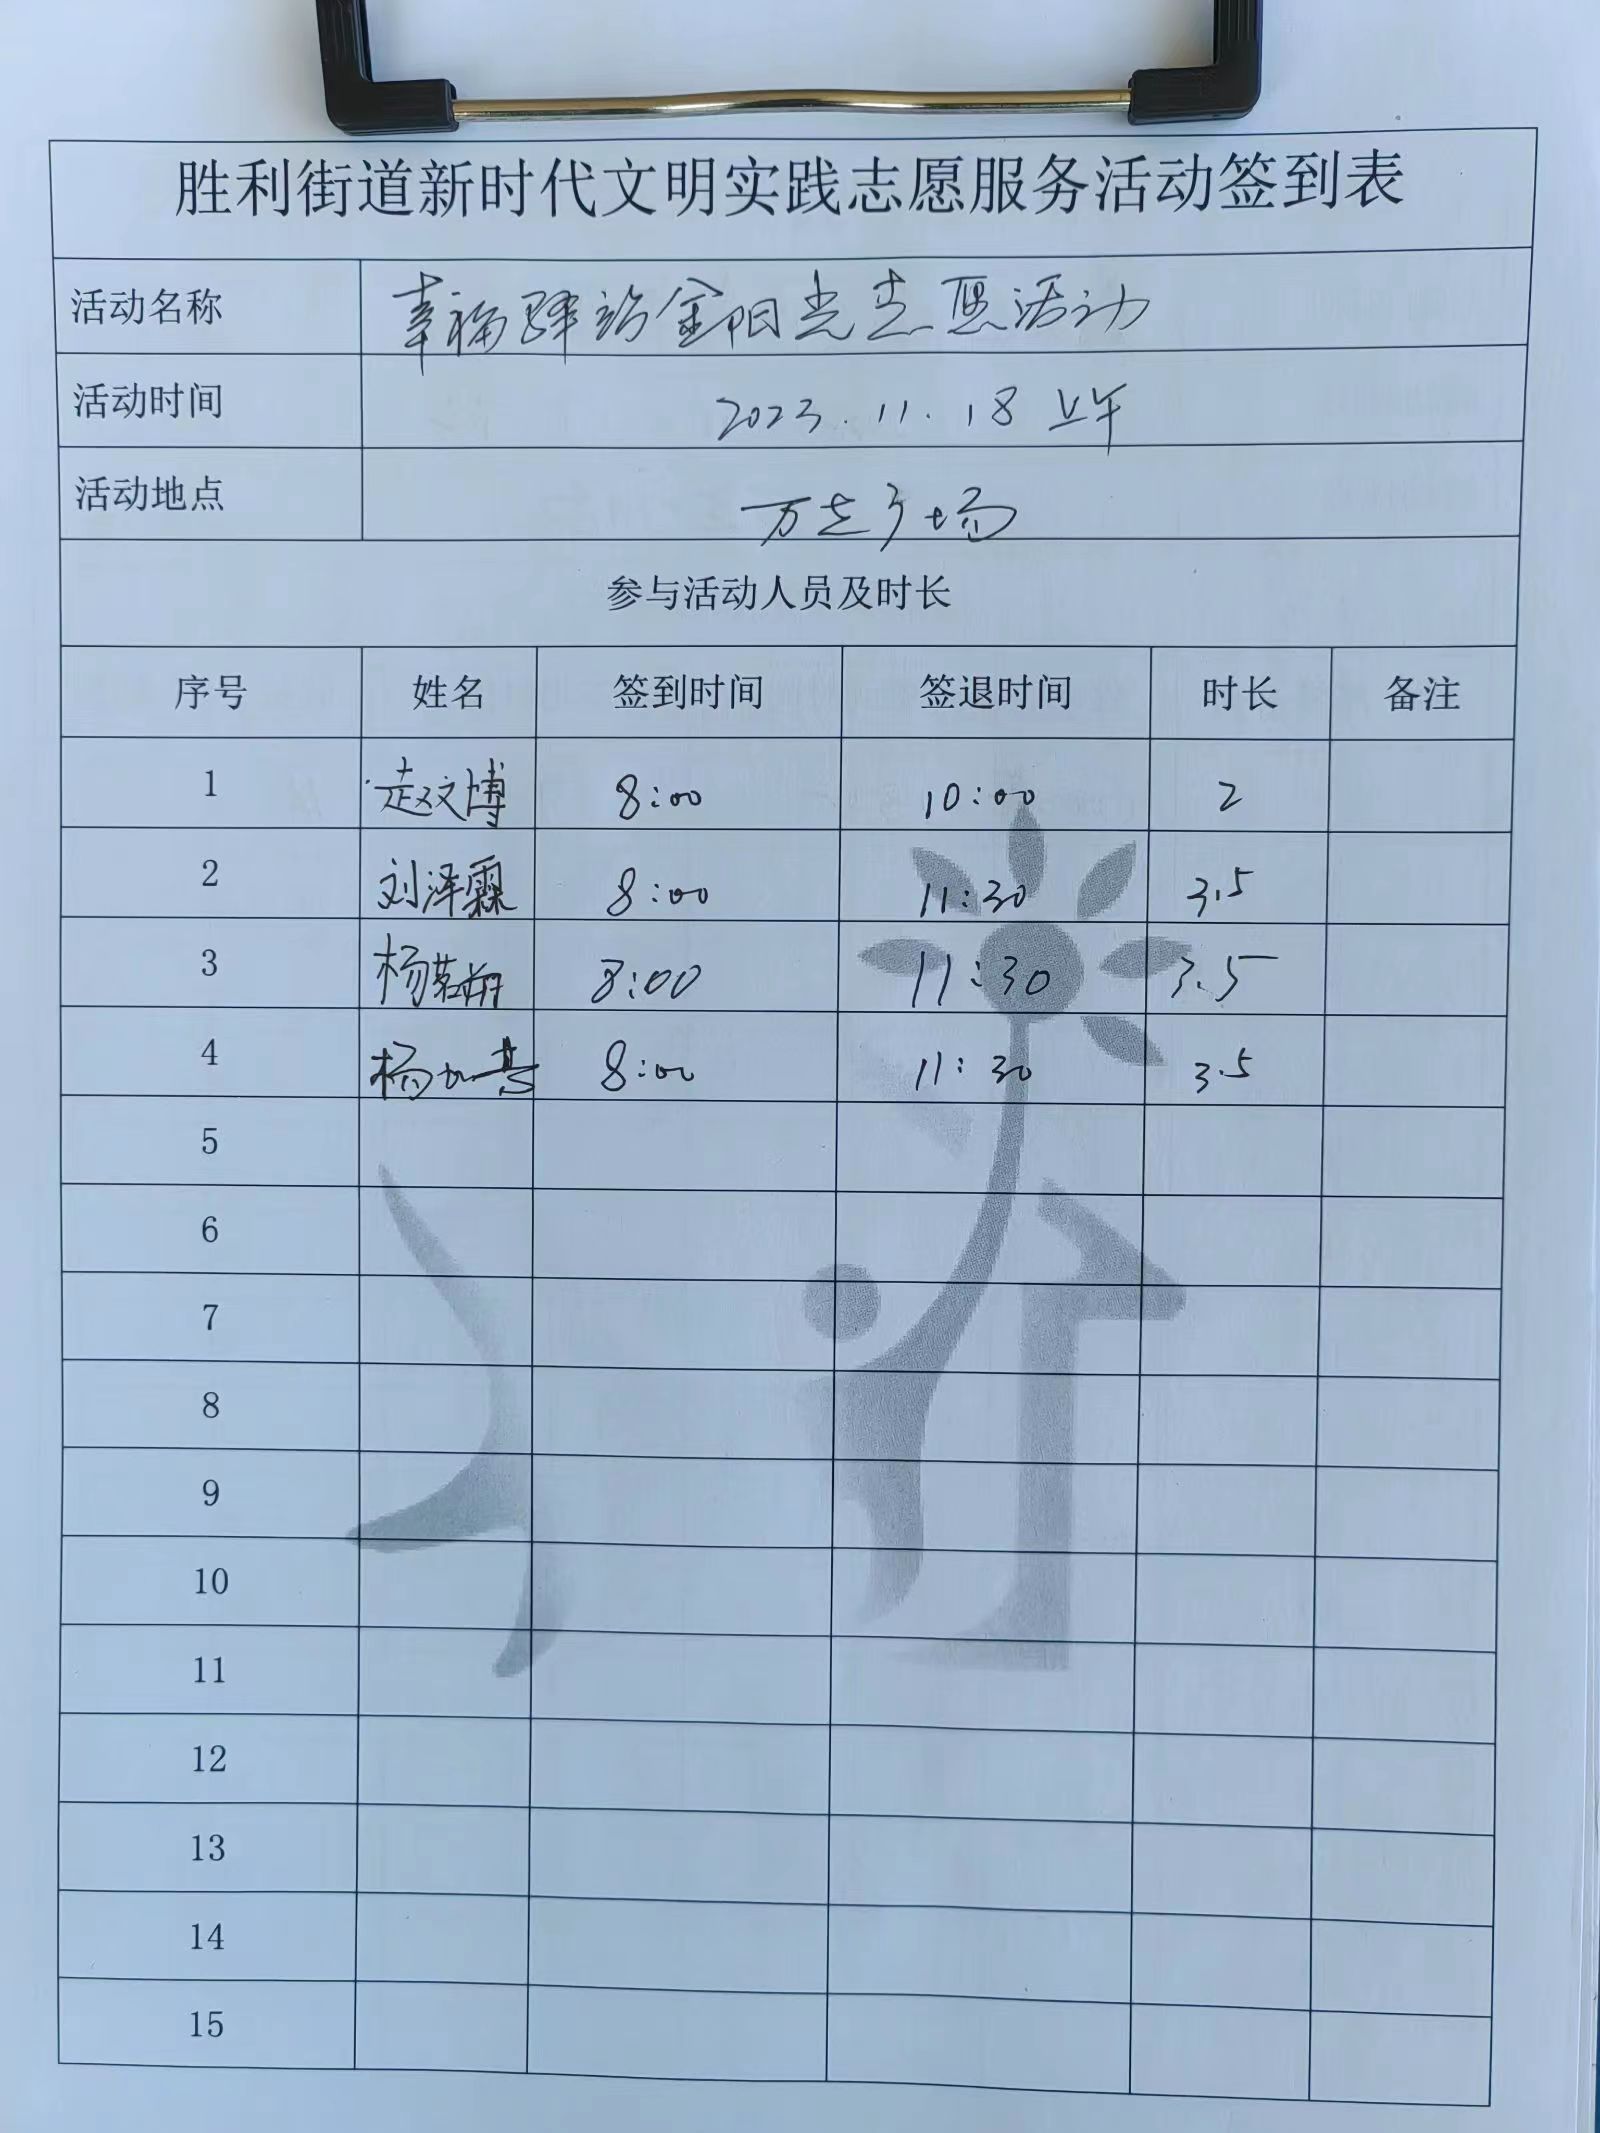 胜利街道新时代文明实践志愿服务活动签到表
活动名称 幸福驿站金阳光志愿活动
活动时间 2023.11.18 上午
活动地点 万达广场
参与活动人员及时长
序号 姓名 签到时间 签退时间 时长 备注
1 赵文博 8:00 10:00 2
2 刘泽霖 8:00 11:30 3.5
3 杨 8:00 11:30 3.5
4 杨 8:00 11:30 3.5
5
6
7
8
9
10
11
12
13
14
15